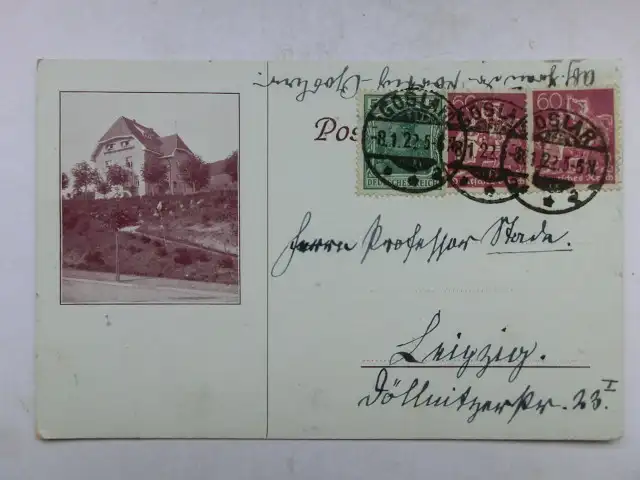 Abs. Frau
Pos
5
60
60
DEUTSCHES REICH
GOSLAR
-8.1.22.5-6N.
GOSLAR
8.1.22.
GOSLAR
-8.1.22.5-6N.
Herrn Professor Stade.
Leipzig.
Döllnitzerstr. 23.I